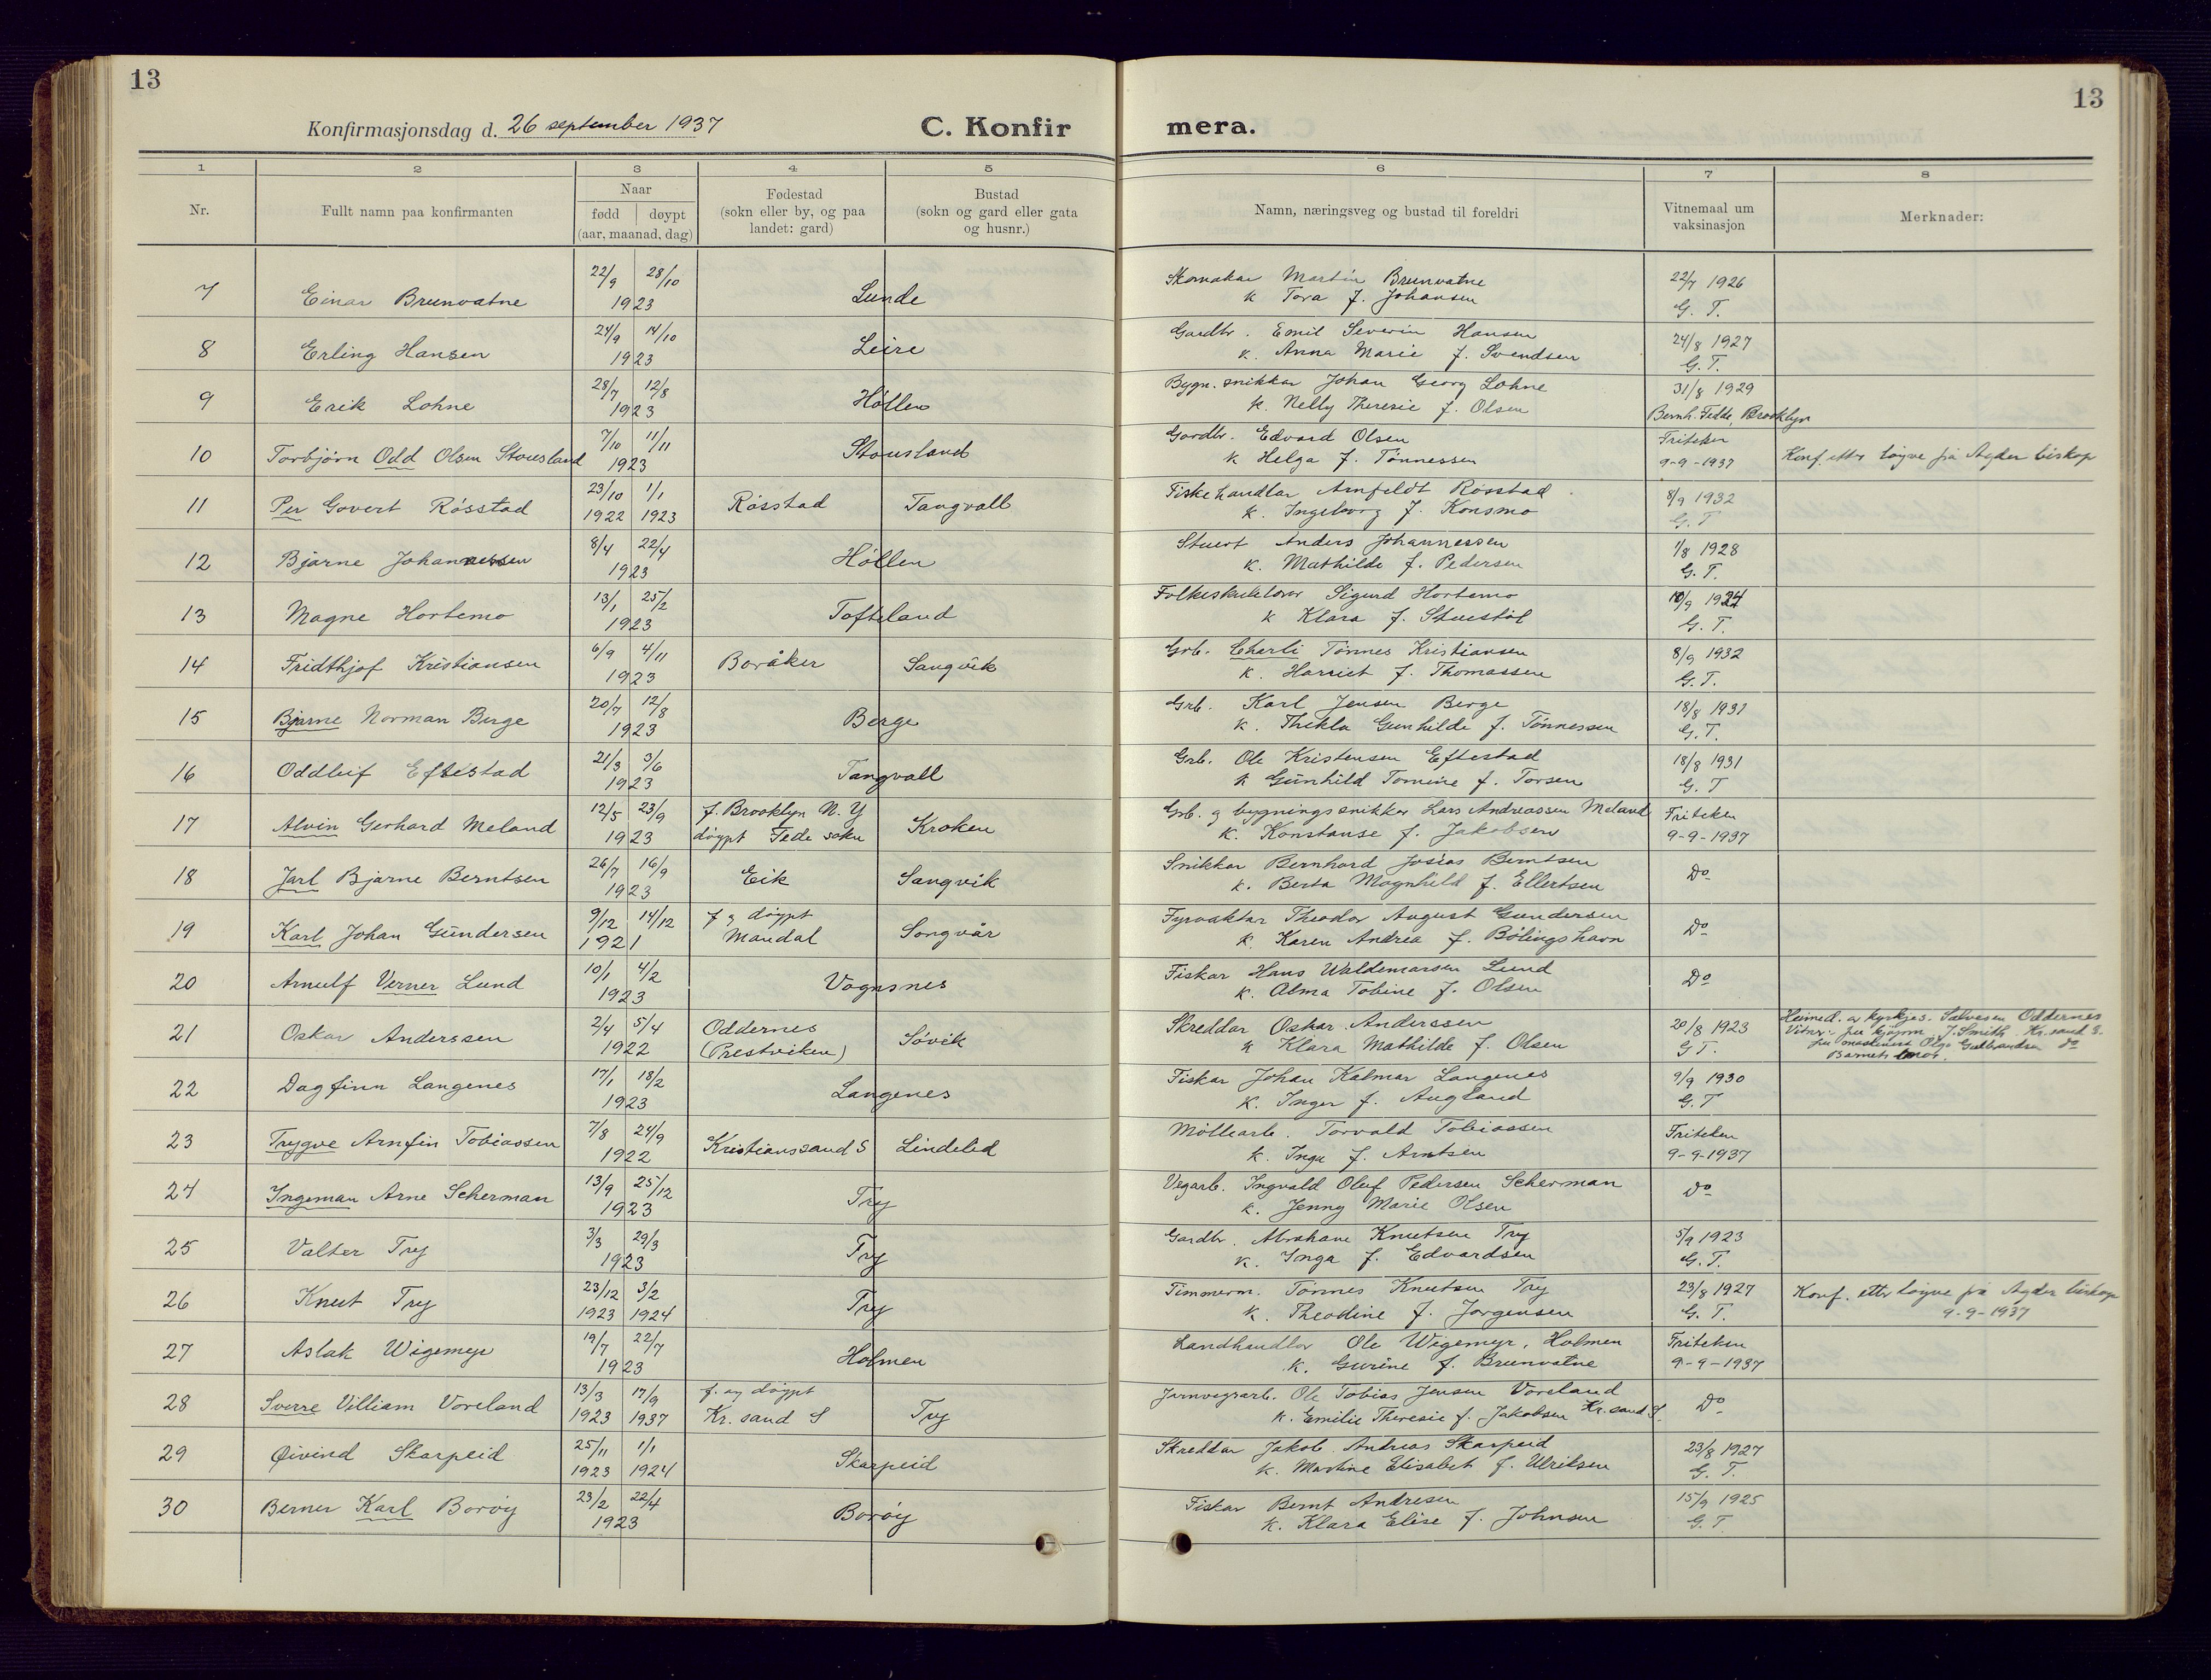 13
13
Konfirmasjonsdag d. 26 september 1937
C. Konfir
mera.
1 2 3 4 5 6 7 8
Nr.
Fullt namn paa konfirmanten
Naar
fødd døypt
(aar, maanad, dag)
Fødestad
(sokn eller by, og paa
landet: gard)
Bustad
(sokn og gard eller gata
og husnr.)
Namn, næringsveg og bustad til foreldri
Vitnemaal um
vaksinasjon
Merknader:
22/9 28/10 Skomakar Martin Brunvatne 22/7 1926
7 Einar Brunvatne 1923 Lunde k Tora f. Johansen G. T.
24/9 14/10 Gardbr. Emil Severin Hansen 24/8 1927
8 Erling Hansen 1923 Leire k. Anna Marie f. Svendsen G. T.
28/7 12/8 Bygn. snikkar Johan Georg Lohne 31/8 1929
9 Erik Lohne 1923 Høllen k. Nelly Theresie f. Olsen Bernh. Fedde, Brooklyn
7/10 11/11 Gardbr. Edvard Olsen Friteken
10 Torbjørn Odd Olsen Stousland 1923 Stousland k Helga f. Tønnessen 9-9-1937 Konf. etter løyve frå Agder biskop
23/10 1/1 Fiskehandlar Arnfeldt Røsstad 8/9 1932
11 Per Govert Røsstad 1922 1923 Røsstad Tangvall k. Ingeborg f. Konsmo G. T
8/4 22/4 Stuert Anders Johannessen 1/8 1928
12 Bjarne Johannessen 1923 Høllen k. Mathilde f. Pedersen G. T.
13/1 25/2 Folkeskulelærar Sigurd Hortemo 10/9 1924
13 Magne Hortemo 1923 Tofteland k Klara f. Stuestøl G. T.
6/9 4/11 Grb. Charli Tønnes Kristiansen 8/9 1932
14 Fridthjof Kristiansen 1923 Boråker Sangvik k. Harriet f. Thomassen G. T.
20/7 12/8 Grb. Karl Jensen Berge 18/8 1931
15 Bjarne Norman Berge 1923 Berge k. Thekla Gunhilde f. Tønnessen G. T.
21/3 3/6 Grb. Ole Kristensen Eftestad 18/8 1931
16 Oddleif Eftestad 1923 Tangvall k Gunhild Tomine f. Torsen G. T
12/5 23/9 f. Brooklyn N. Y Grb. og bygningssnikkar Lars Andreassen Meland Friteken
17 Alvin Gerhard Meland 1923 døypt Fede sokn Kroken k. Konstanse f. Jakobsen 9-9-1937
26/7 16/9 Snikkar Bernhard Josias Berntsen
18 Jarl Bjarne Berntsen 1923 Eik Sangvik k. Berta Magnhild f. Ellertsen Do
9/12 14/12 f og døypt Fyrvaktar Theodor August Gundersen
19 Karl Johan Gundersen 1921 Mandal Songvår k. Karen Andrea f. Bølingshavn Do
10/1 4/2 Fiskar Hans Waldemarsen Lund
20 Arnulf Verner Lund 1923 Vognsnes k. Alma Tobine f. Olsen Do
2/4 5/4 Oddernes Skreddar Oskar Anderssen 20/8 1923 Heimed. av kyrkjes. Salvesen Oddernes
21 Oskar Anderssen 1922 (Prestviken) Søvik k Klara Mathilde f. Olsen G T. Vitnir: J. Smith Kr.sand S.
Olga Gulbrandsen do
Barnets mor.
17/1 18/2 Fiskar Johan Kalmar Langenes 9/9 1930
22 Dagfinn Langenes 1923 Langenes k. Inger f. Augland G. T
7/8 24/9 Møllearb. Torvald Tobiassen Friteken
23 Trygve Arnfin Tobiassen 1922 Kristianssand S Lindelid k. Inga f. Arntsen 9-9-1937
13/9 25/12 Vegarb. Ingvald Oluf Pedersen Scherman
24 Ingeman Arne Scherman 1923 Try k. Jenny Marie Olsen Do
3/3 29/3 Gardbr. Abraham Knutsen Try 5/9 1923
25 Valter Try 1923 Try k. Inga f. Edvardsen G. T.
23/12 3/2 Timmerm. Tønnes Knutsen Try 23/8 1927 Konf. etter løyve frå Agder biskop
26 Knut Try 1923 1924 Try k. Theodine f. Jørgensen G. T. 9-9-1937
19/7 22/7 Landhandlar Ole Wigemyr, Holmen Friteken
27 Aslak Wigemyr 1923 Holmen k. Gurine f. Brunvatne 9-9-1937
13/3 17/9 f. og døypt Jarnvegsarb. Ole Tobias Jensen Voreland
28 Sverre Villiam Voreland 1923 1937 Kr. sand S Try k. Emilie Theresie f. Jakobsen Kr. sand S. Do
25/11 1/1 Skreddar Jakob Andreas Skarpeid 23/8 1927
29 Øivind Skarpeid 1923 1924 Skarpeid k. Martine Elisabet f. Ulriksen G. T.
23/2 22/4 Fiskar Bernt Andresen 15/9 1925
30 Berner Karl Borøy 1923 Borøy k. Klara Elise f. Johnsen G. T